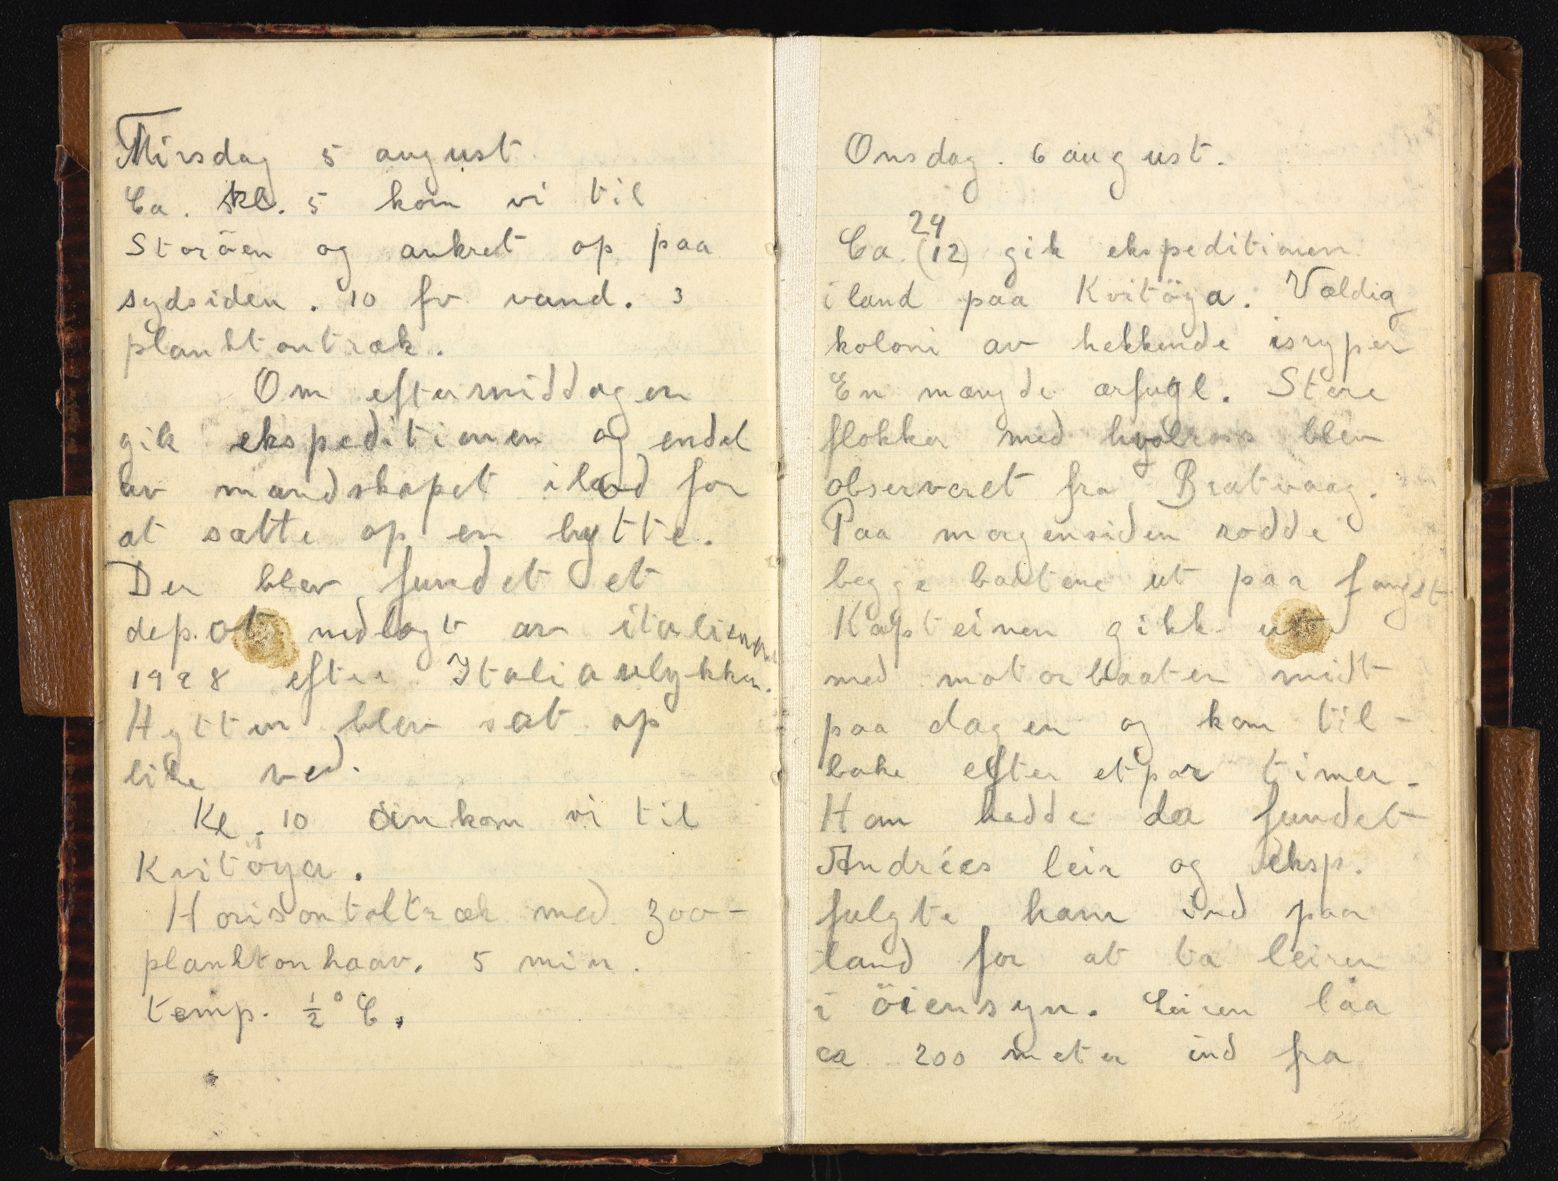 Tirsdag 5 august
Ca. kl. 5 kom vi til
Storöen og ankret op paa
sydsiden. 10 fv vand. 3
planktontræk.
Om eftermiddagen
gik ekspeditionen og endel
av mandskapet iland for
at sætte op en hytte.
Der blev fundet et
depot nedlagt av italienerne
1928 efter Italiaulykken.
Hytten blev sat op
like ved.
Kl. 10 ankom vi til
Kvitöya.
Horisontaltræk med zoo-
planktonhaav. 5 min.
temp. ½° C.
Onsdag. 6 august.
24
Ca. (12) gik ekspeditionen
iland paa Kvitöya. Vældig
koloni av hekkende isryper
En mængde ærfugl. Store
flokker med hvalross blev
observeret fra Bratvaag.
Paa morgensiden rodde
begge baatene ut paa fangst
Kapteinen gikk ut
med motorbaaten midt
paa dagen og kom til-
bake efter etpar timer.
Han hadde da fundet
Andrées leir og eksp.
fulgte ham ind paa
land for at ta leiren
i öiensyn. Leiren laa
ca 200 meter ind fra